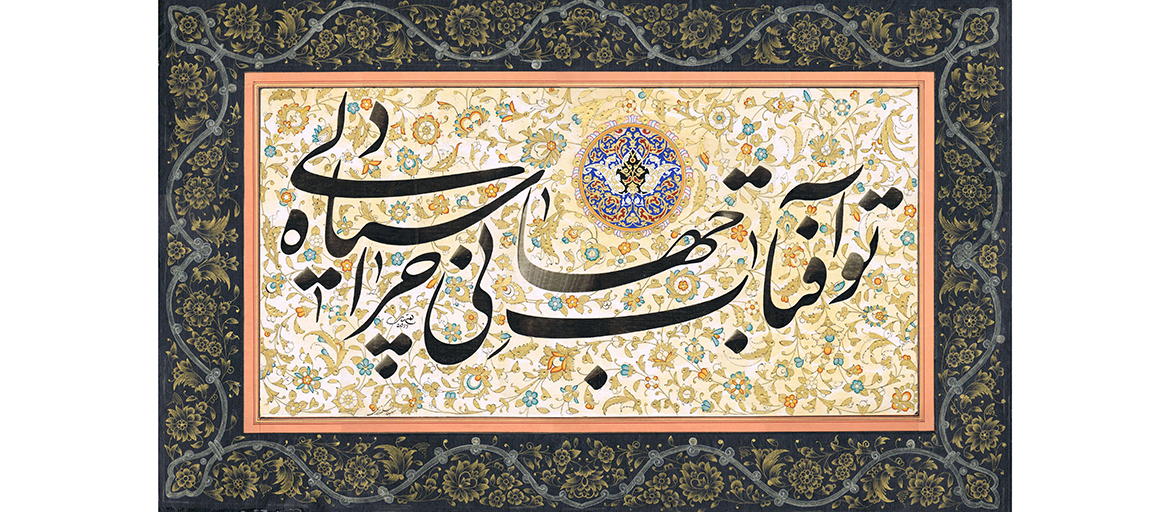 تو آفتاب جهانی چرا سیاه دلی